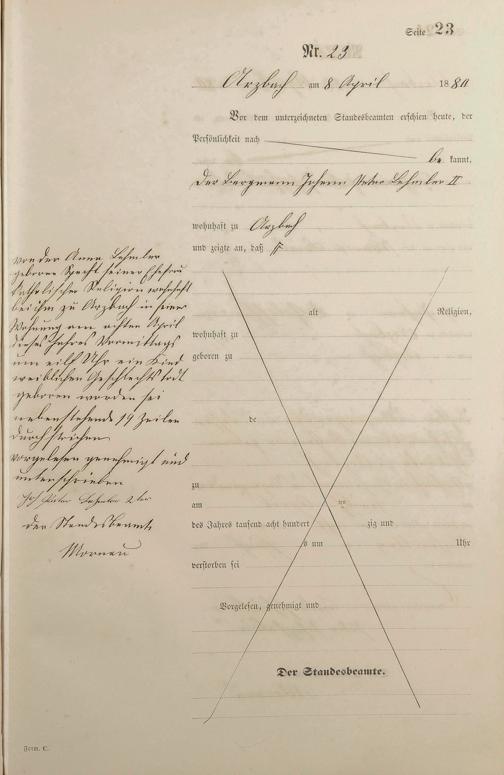 Seite 23
Nr. 23
Arzbach am 8 April 1880
Vor dem unterzeichneten Standesbeamten erschien heute, der
Persönlichkeit nach
be kannt,
der Bergmann Johann Peter Lehmler II
wohnhaft zu Arzbach
und zeigte an, daß
von der Anna Lehmler
geborene Specht seiner Ehefrau
katholischer Religion wohnhaft
bei ihm zu Arzbach in seiner
Wohnung am achten April
dieses Jahres Vormittags
um eilf Uhr ein Kind
weiblichen Geschlechts todt
geboren worden sei
nebenstehende 19 Zeilen
durchstrichen
vorgelesen genehmigt und
unterschrieben
Joh Peter Lehmler 2ter
der Standesbeamte
Mornau
alt Religion,
wohnhaft zu
geboren zu
de
zu
am ten
des Jahres tausend acht hundert zig und
um Uhr
verstorben sei
Vorgelesen, genehmigt und
Der Standesbeamte.
Form. C.